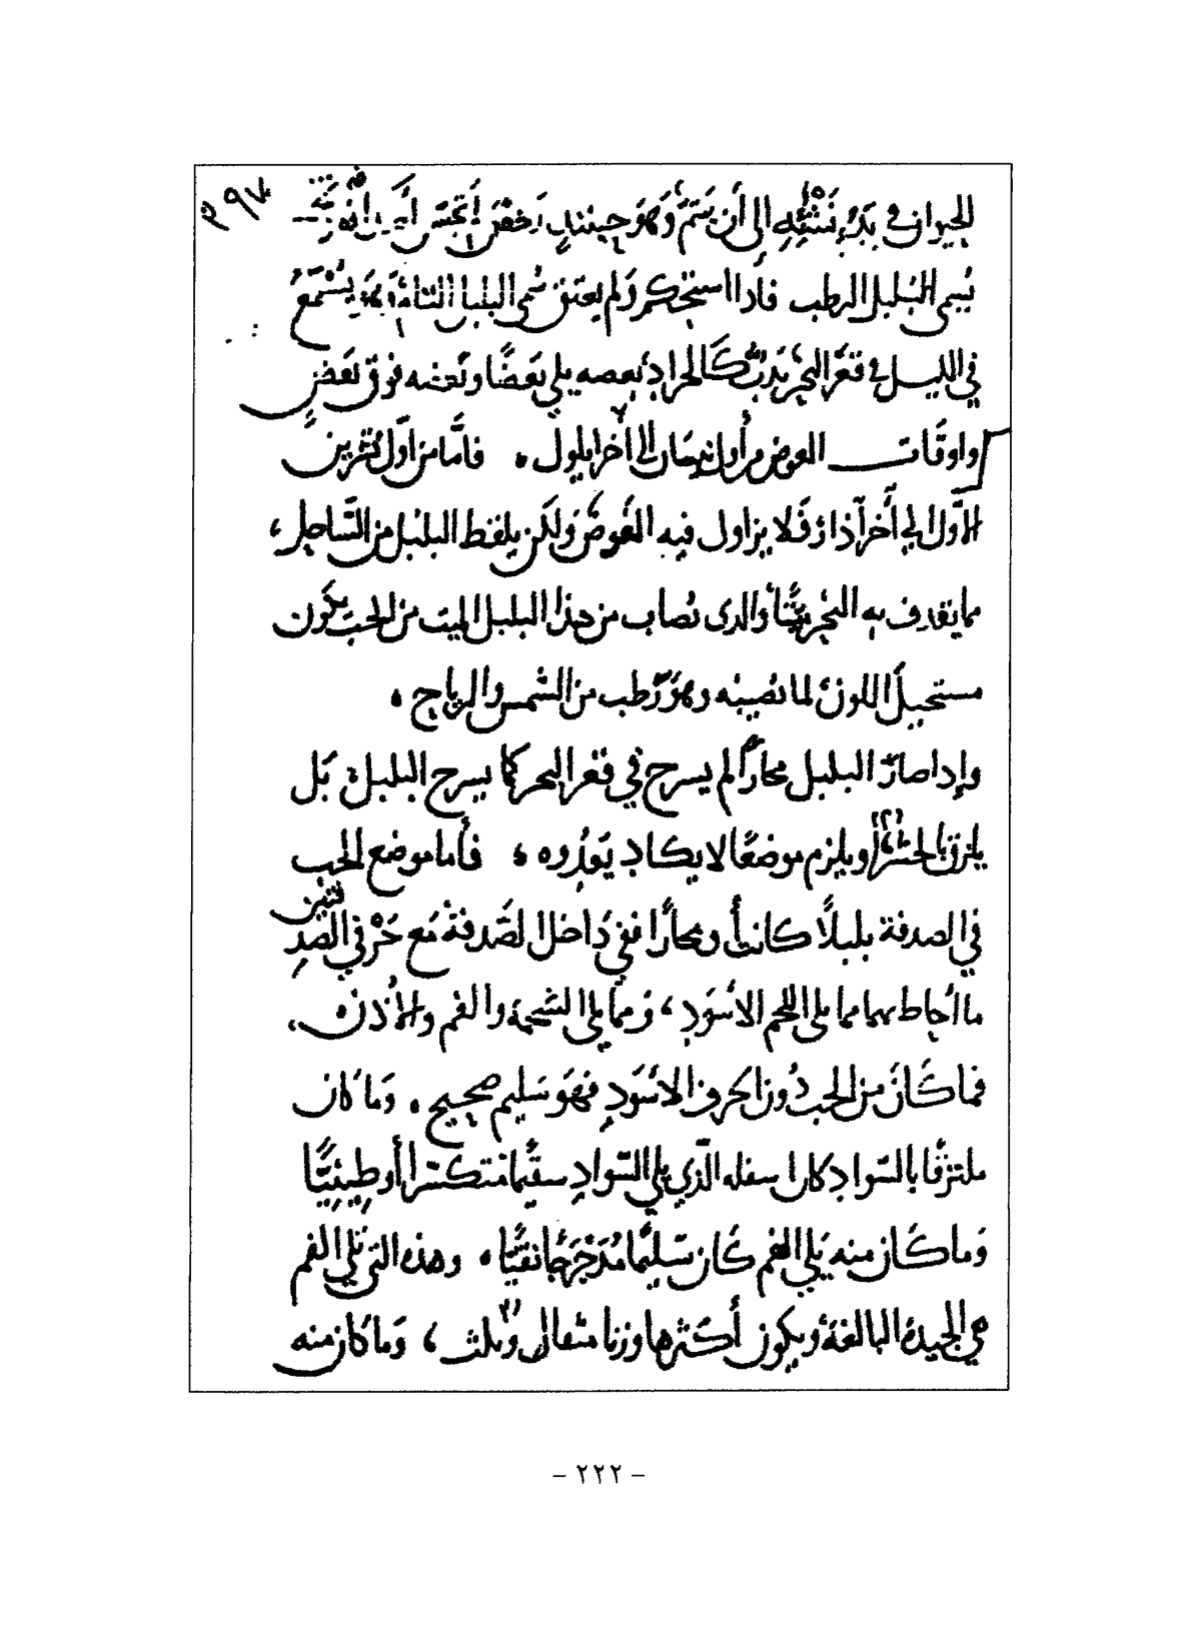 الحيوان في بدء نشئه إلى أن يستتم وهو حينئذ رخص
يسمى البلبل الرطب فاذا استحكم ولم يعتق سمي البلبل
في الليل في قعر البحر يدب كالجراد بعضه يلي بعضا وبعضه فوق بعض
واوقات الغوص من أول نيسان إلى آخر ايلول . فاما من أول تشرين
الأول الى آخر آذار فلا يزاول فيه الغوص ولكن يلقط البلبل من الساحل ،
مما يقذف به البحر ميتا والذي يصاب من هذا البلبل الميت من الحب يكون
مستحيل اللون لما يصيبه وهو رطب من الشمس والرياح .
وإذا صار البلبل محارا لم يسرح في قعر البحر كما يسرح البلبل بل
يلزق ويلزم موضعا لا يكاد يعدوه ، فأما موضع الحب
في الصدفة بلبلا كانت أو محارا ففي داخل الصدفة مع حرفي الصدفتين
ما أحاط بهما مما يلى اللحم الأسود ، ومما يلي الشحمة والفم والأذن ،
فما كان من الحب دون الحرف الأسود فهو سليم صحيح . وما كان
ملتزقا بالسواد كان اسفله الذي يلي السواد سقيما متكسرا أو طينيا
وما كان منه يلي الفم كان سليما مدحرجا نقيا . وهذه التي تلي الفم
هي الجيدة البالغة ويكون أكثرها وزنا مثقال وثلث ، وما كان منه
- ٢٢٢ -